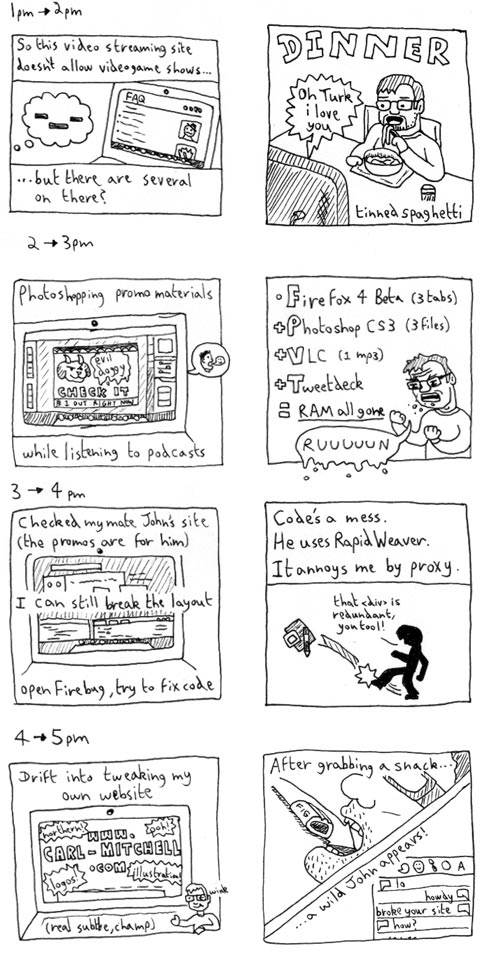 1pm → 2pm
So this video streaming site
doesn't allow videogame shows...
FAQ
...but there are several
on there?
DINNER
Oh Turk
i love
you
tinned spaghetti
2 → 3pm
Photoshopping promo materials
evil
doggy
CHECK IT
#1 OUT RIGHT NOW
while listening to podcasts
Firefox 4 Beta (3 tabs)
+Photoshop CS3 (3 files)
+VLC (1 mp3)
+Tweetdeck
= RAM all gone
RUUUUUN
3 → 4 pm
Checked my mate John's site
(the promos are for him)
I can still break the layout
open Firebug, try to fix code
Code's a mess.
He uses RapidWeaver.
It annoys me by proxy.
that <div> is
redundant,
you tool!
4 → 5pm
Drift into tweaking my
own website
northern!
pooh!
WWW.
CARL-MITCHELL
.COM
logos
illustration!
wink
(real subtle, champ)
After grabbing a snack...
FIG
...a wild John appears!
A
lo
howdy
broke your site
how?